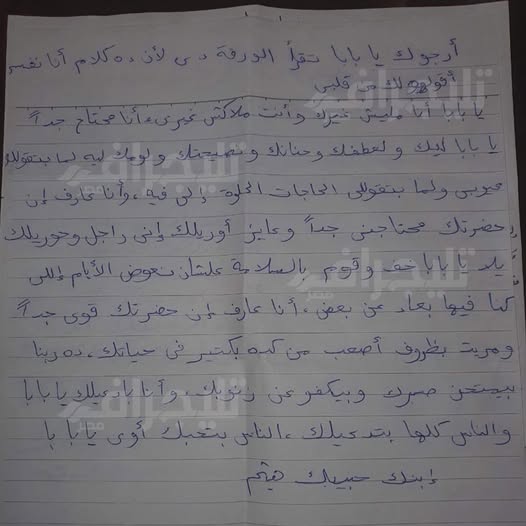 أرجوك يا بابا تقرأ الورقة دى لأن ده كلام أنا نفسى
أقوله لك من قلبى
يا بابا أنا مليش غيرك وأنت ملاكش غيرى، أنا محتاج جداً
يا بابا ليك ولعطفك وحنانك ونصيحتك ولومك ليه لما بتقوللى
عيوبى ولما بتقوللى الحاجات الحلوة إلى فيه، وأنا عارف إن
حضرتك محتاجنى جداً وعايز أوريلك إنى راجل وحوريلك
يلا يا بابا خف وقوم بالسلامة علشان نعوض الأيام إللى
كنا فيها بعاد عن بعض، أنا عارف إن حضرتك قوى جداً
ومريت بظروف أصعب من كده بكتير فى حياتك، ده ربنا
بيمتحن صبرك وبيكفر عن ذنوبك، وأنا بادعيلك يا بابا
والناس كلها بتدعيلك، الناس بتحبك أوى يا بابا
إبنك حبيبك هيثم
تليجراف
مصر